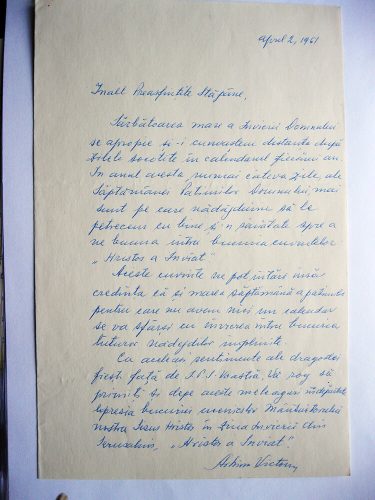 April 2, 1961
Inalt Preasfintite Stăpâne,
Sărbătoarea mare a Invierii Domnului
se apropie si-i cunoastem distanta după
zilele socotite în calendarul fiecărui an.
In anul acesta numai câteva zile ale
Săptămânei Patimilor Domnului mai
sunt pe care nădăjduim să le
petrecem cu bine și'n sănătate spre a
ne bucura intru bucuria cuvintelor
„Hristos a Inviat".
Aceste cuvinte ne pot întări în
credinta că și marea săptămână a patimilor
pentru care nu avem nici un calendar
se va sfârsi cu invierea intru bucuria
tuturor nădejdilor implinite.
Cu aceleasi sentimente ale dragostei
frești față de I.P.S. Voastră, Vă rog să
primiti si depe aceste meleaguri
expresia bucuriei Mântuitorului
nostru Isus Hristos în ziua Invierii din
Ierusalim, „Hristos a Inviat"